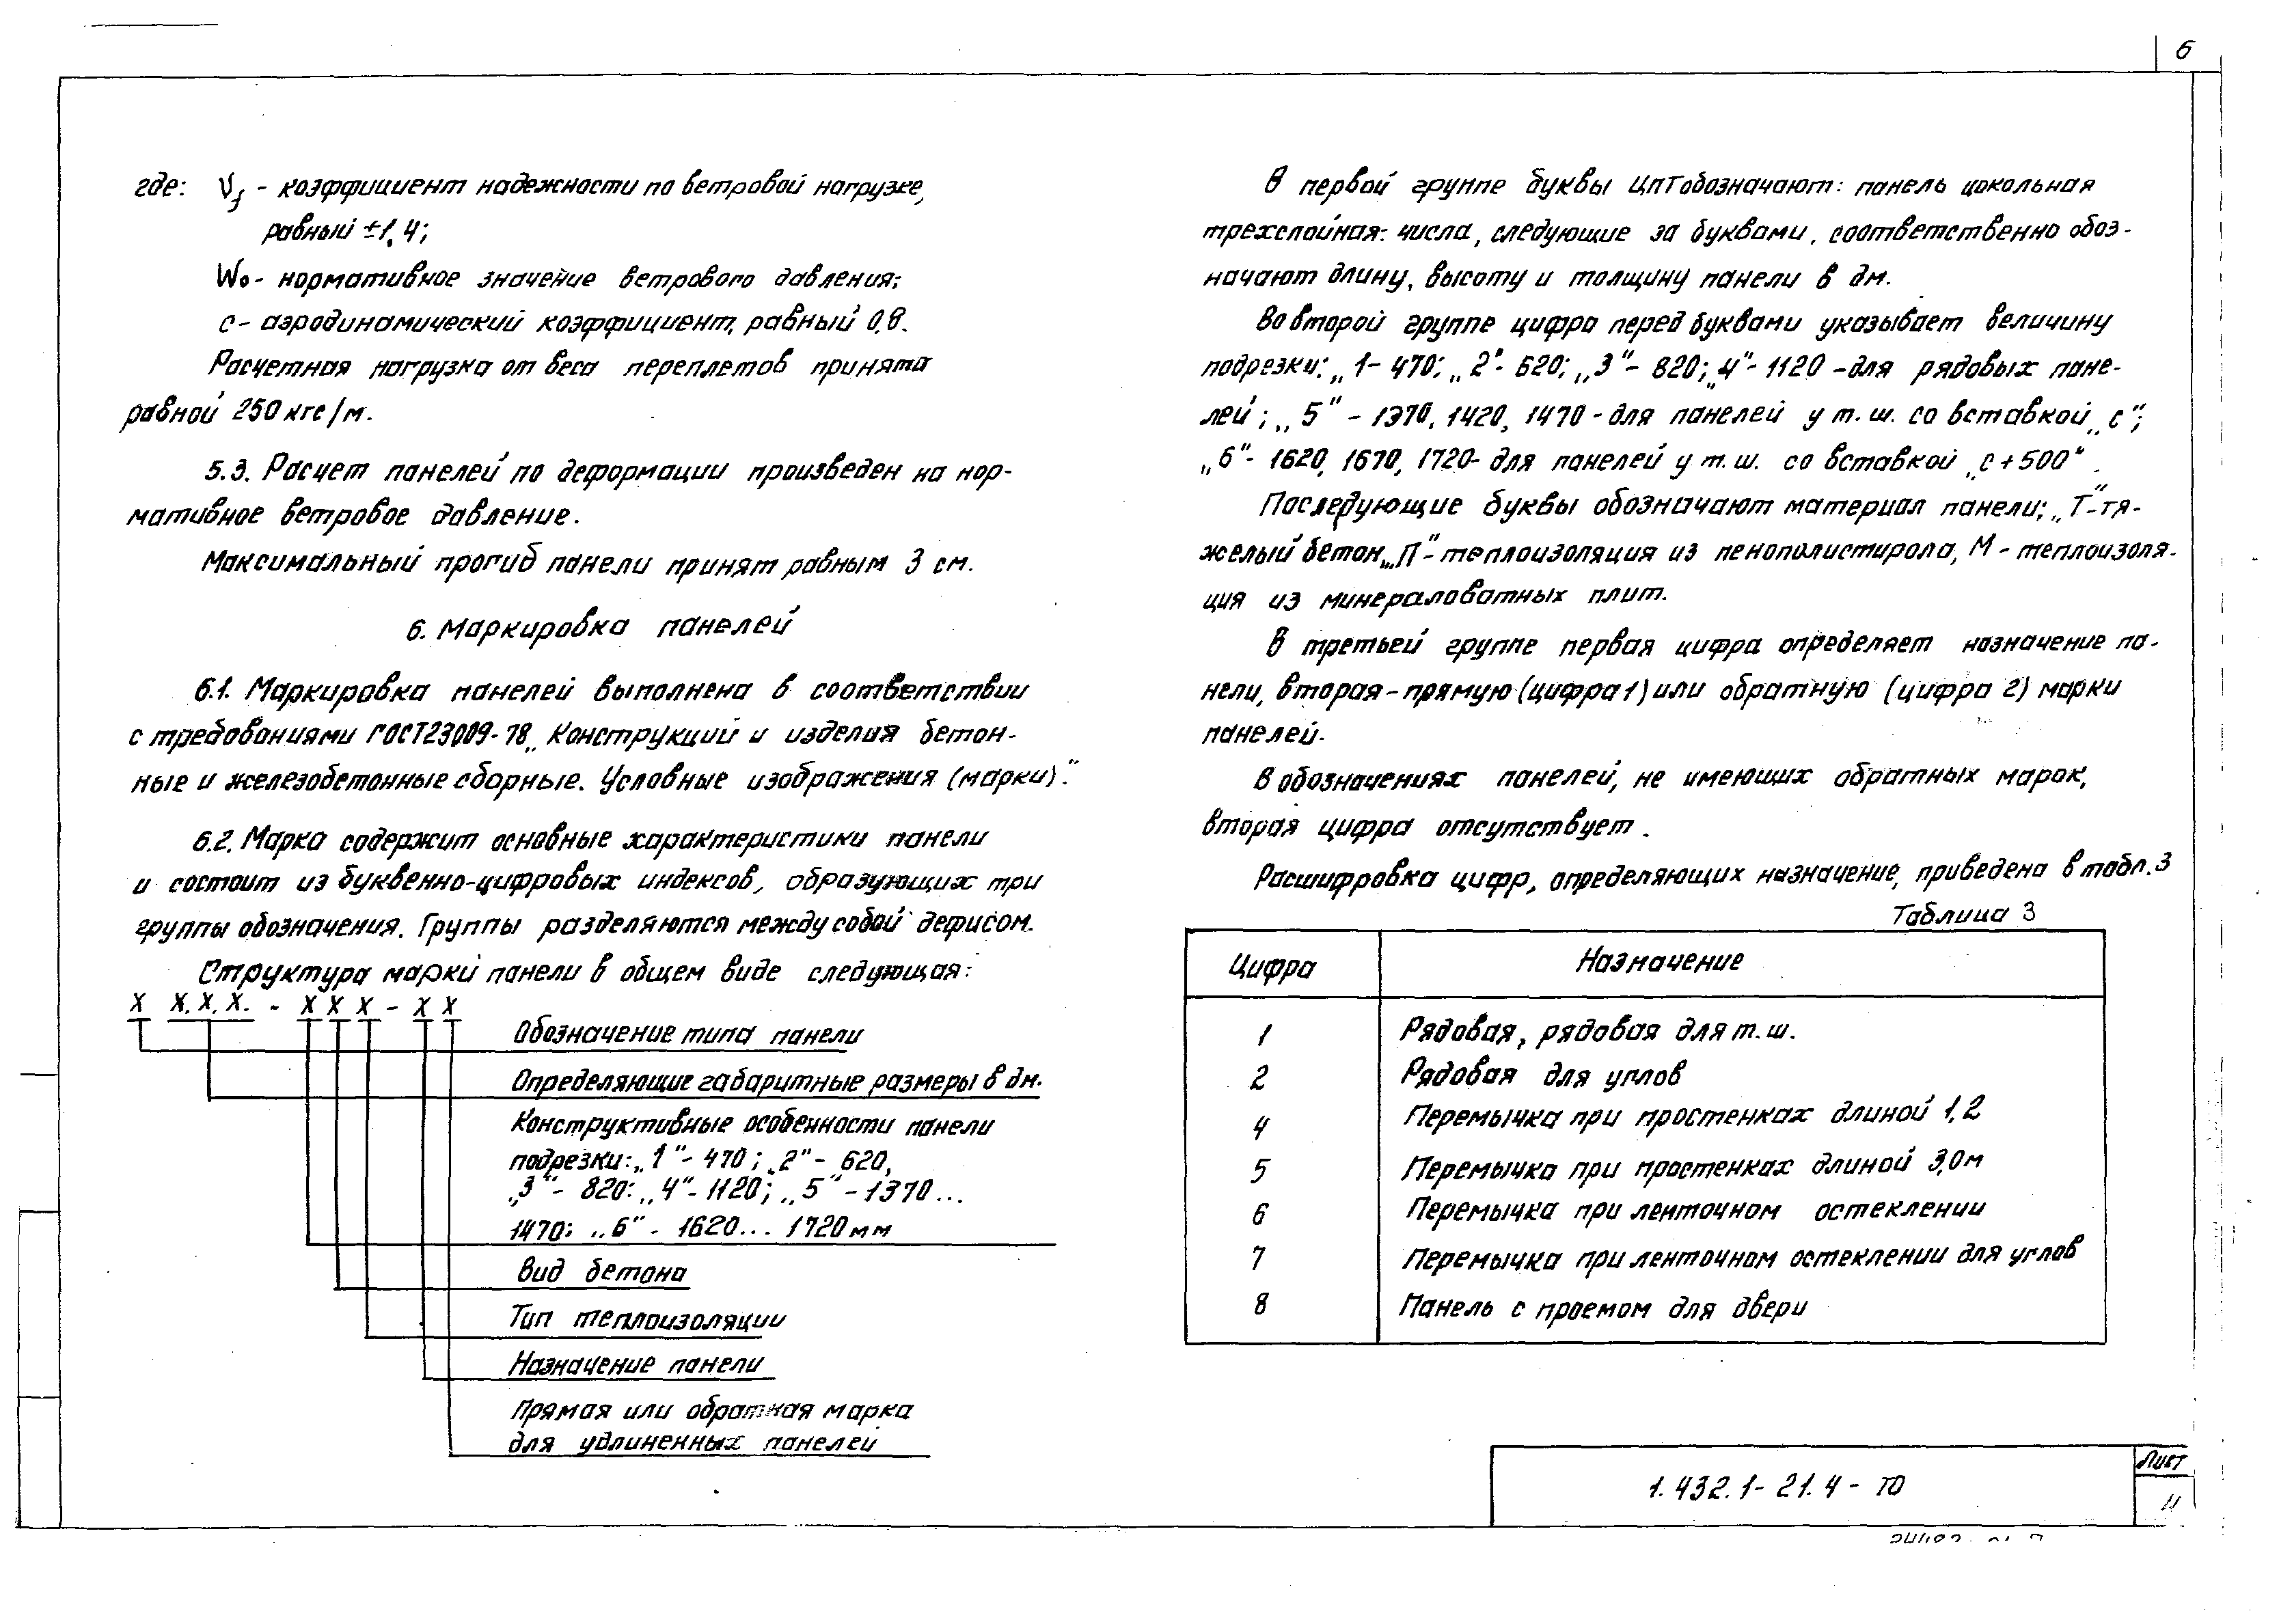 6
где: γf - коэффициент надежности по ветровой нагрузке,
равный ±1,4;
Wo - нормативное значение ветрового давления;
с - аэродинамический коэффициент, равный 0,8.
Расчетная нагрузка от веса переплетов принята
равной 250 кгс/м.
5.3. Расчет панелей по деформации произведен на нор-
мативное ветровое давление.
Максимальный прогиб панели принят равным 3 см.
6. Маркировка панелей
6.1. Маркировка панелей выполнена в соответствии
с требованиями ГОСТ 23009-78 „Конструкции и изделия бетон-
ные и железобетонные сборные. Условные изображения (марки)."
6.2. Марка содержит основные характеристики панели
и состоит из буквенно-цифровых индексов, образующих три
группы обозначения. Группы разделяются между собой дефисом.
Структура марки панели в общем виде следующая:
X X.X.X. - X X X - X X
Обозначение типа панели
Определяющие габаритные размеры в дм.
Конструктивные особенности панели
подрезки: „1" - 470; „2" - 620,
„3" - 820: „4" - 1120; „5" - 1370...
1470: „6" - 1620... 1720 мм
Вид бетона
Тип теплоизоляции
Назначение панели
Прямая или обратная марка
для удлиненных панелей
В первой группе буквы ЦПТ обозначают: панель цокольная
трехслойная: числа, следующие за буквами, соответственно обоз-
начают длину, высоту и толщину панели в дм.
Во второй группе цифра перед буквами указывает величину
подрезки: „1 - 470; „2" - 620; „3" - 820; „4" - 1120 - для рядовых пане-
лей; „5" - 1370, 1420, 1470 - для панелей у т.ш. со вставкой „с";
„6" - 1620, 1670, 1720 - для панелей у т.ш. со вставкой „с+500".
Последующие буквы обозначают материал панели; „Т" - тя-
желый бетон, „П" - теплоизоляция из пенополистирола, М - теплоизоля-
ция из минераловатных плит.
В третьей группе первая цифра определяет назначение па-
нели, вторая - прямую (цифра 1) или обратную (цифра 2) марки
панелей.
В обозначениях панелей, не имеющих обратных марок,
вторая цифра отсутствует.
Расшифровка цифр, определяющих назначение, приведена в табл. 3
Таблица 3
Цифра Назначение
1 Рядовая, рядовая для т.ш.
2 Рядовая для углов
4 Перемычка при простенках длиной 1,2
5 Перемычка при простенках длиной 3,0 м
6 Перемычка при ленточном остеклении
7 Перемычка при ленточном остеклении для углов
8 Панель с проемом для двери
1.432.1-21.4 - ТО
Лист
4